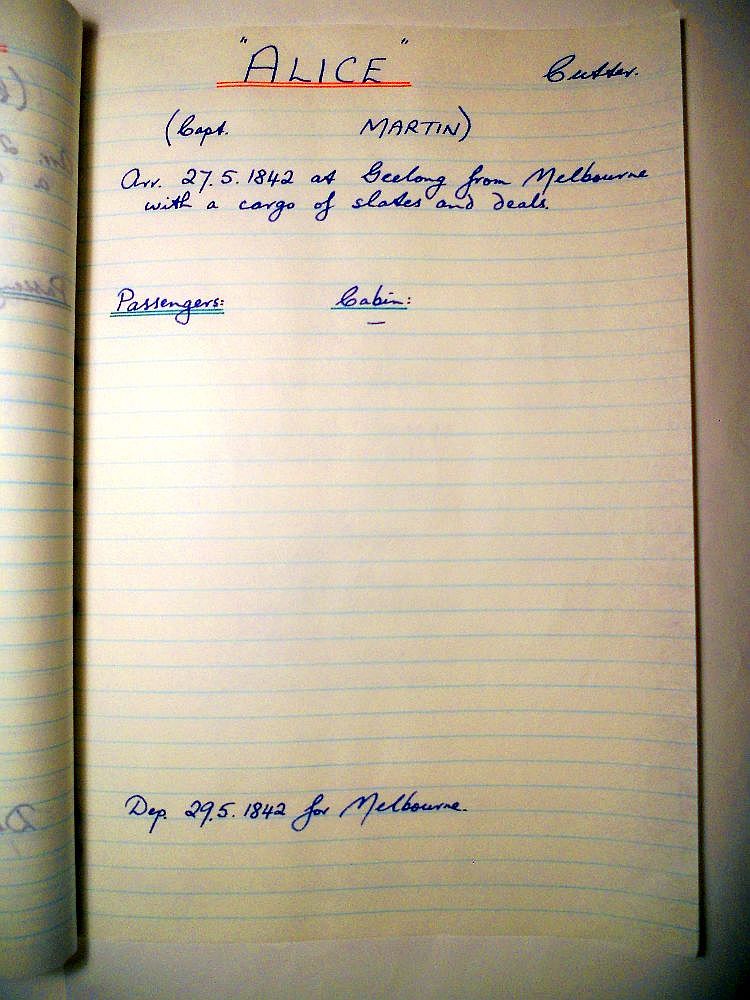 "ALICE" Cutter.
(Capt. MARTIN)
Arr. 27.5.1842 at Geelong from Melbourne
with a cargo of slates and deals.
Passengers: Cabin:
—
Dep. 29.5.1842 for Melbourne.